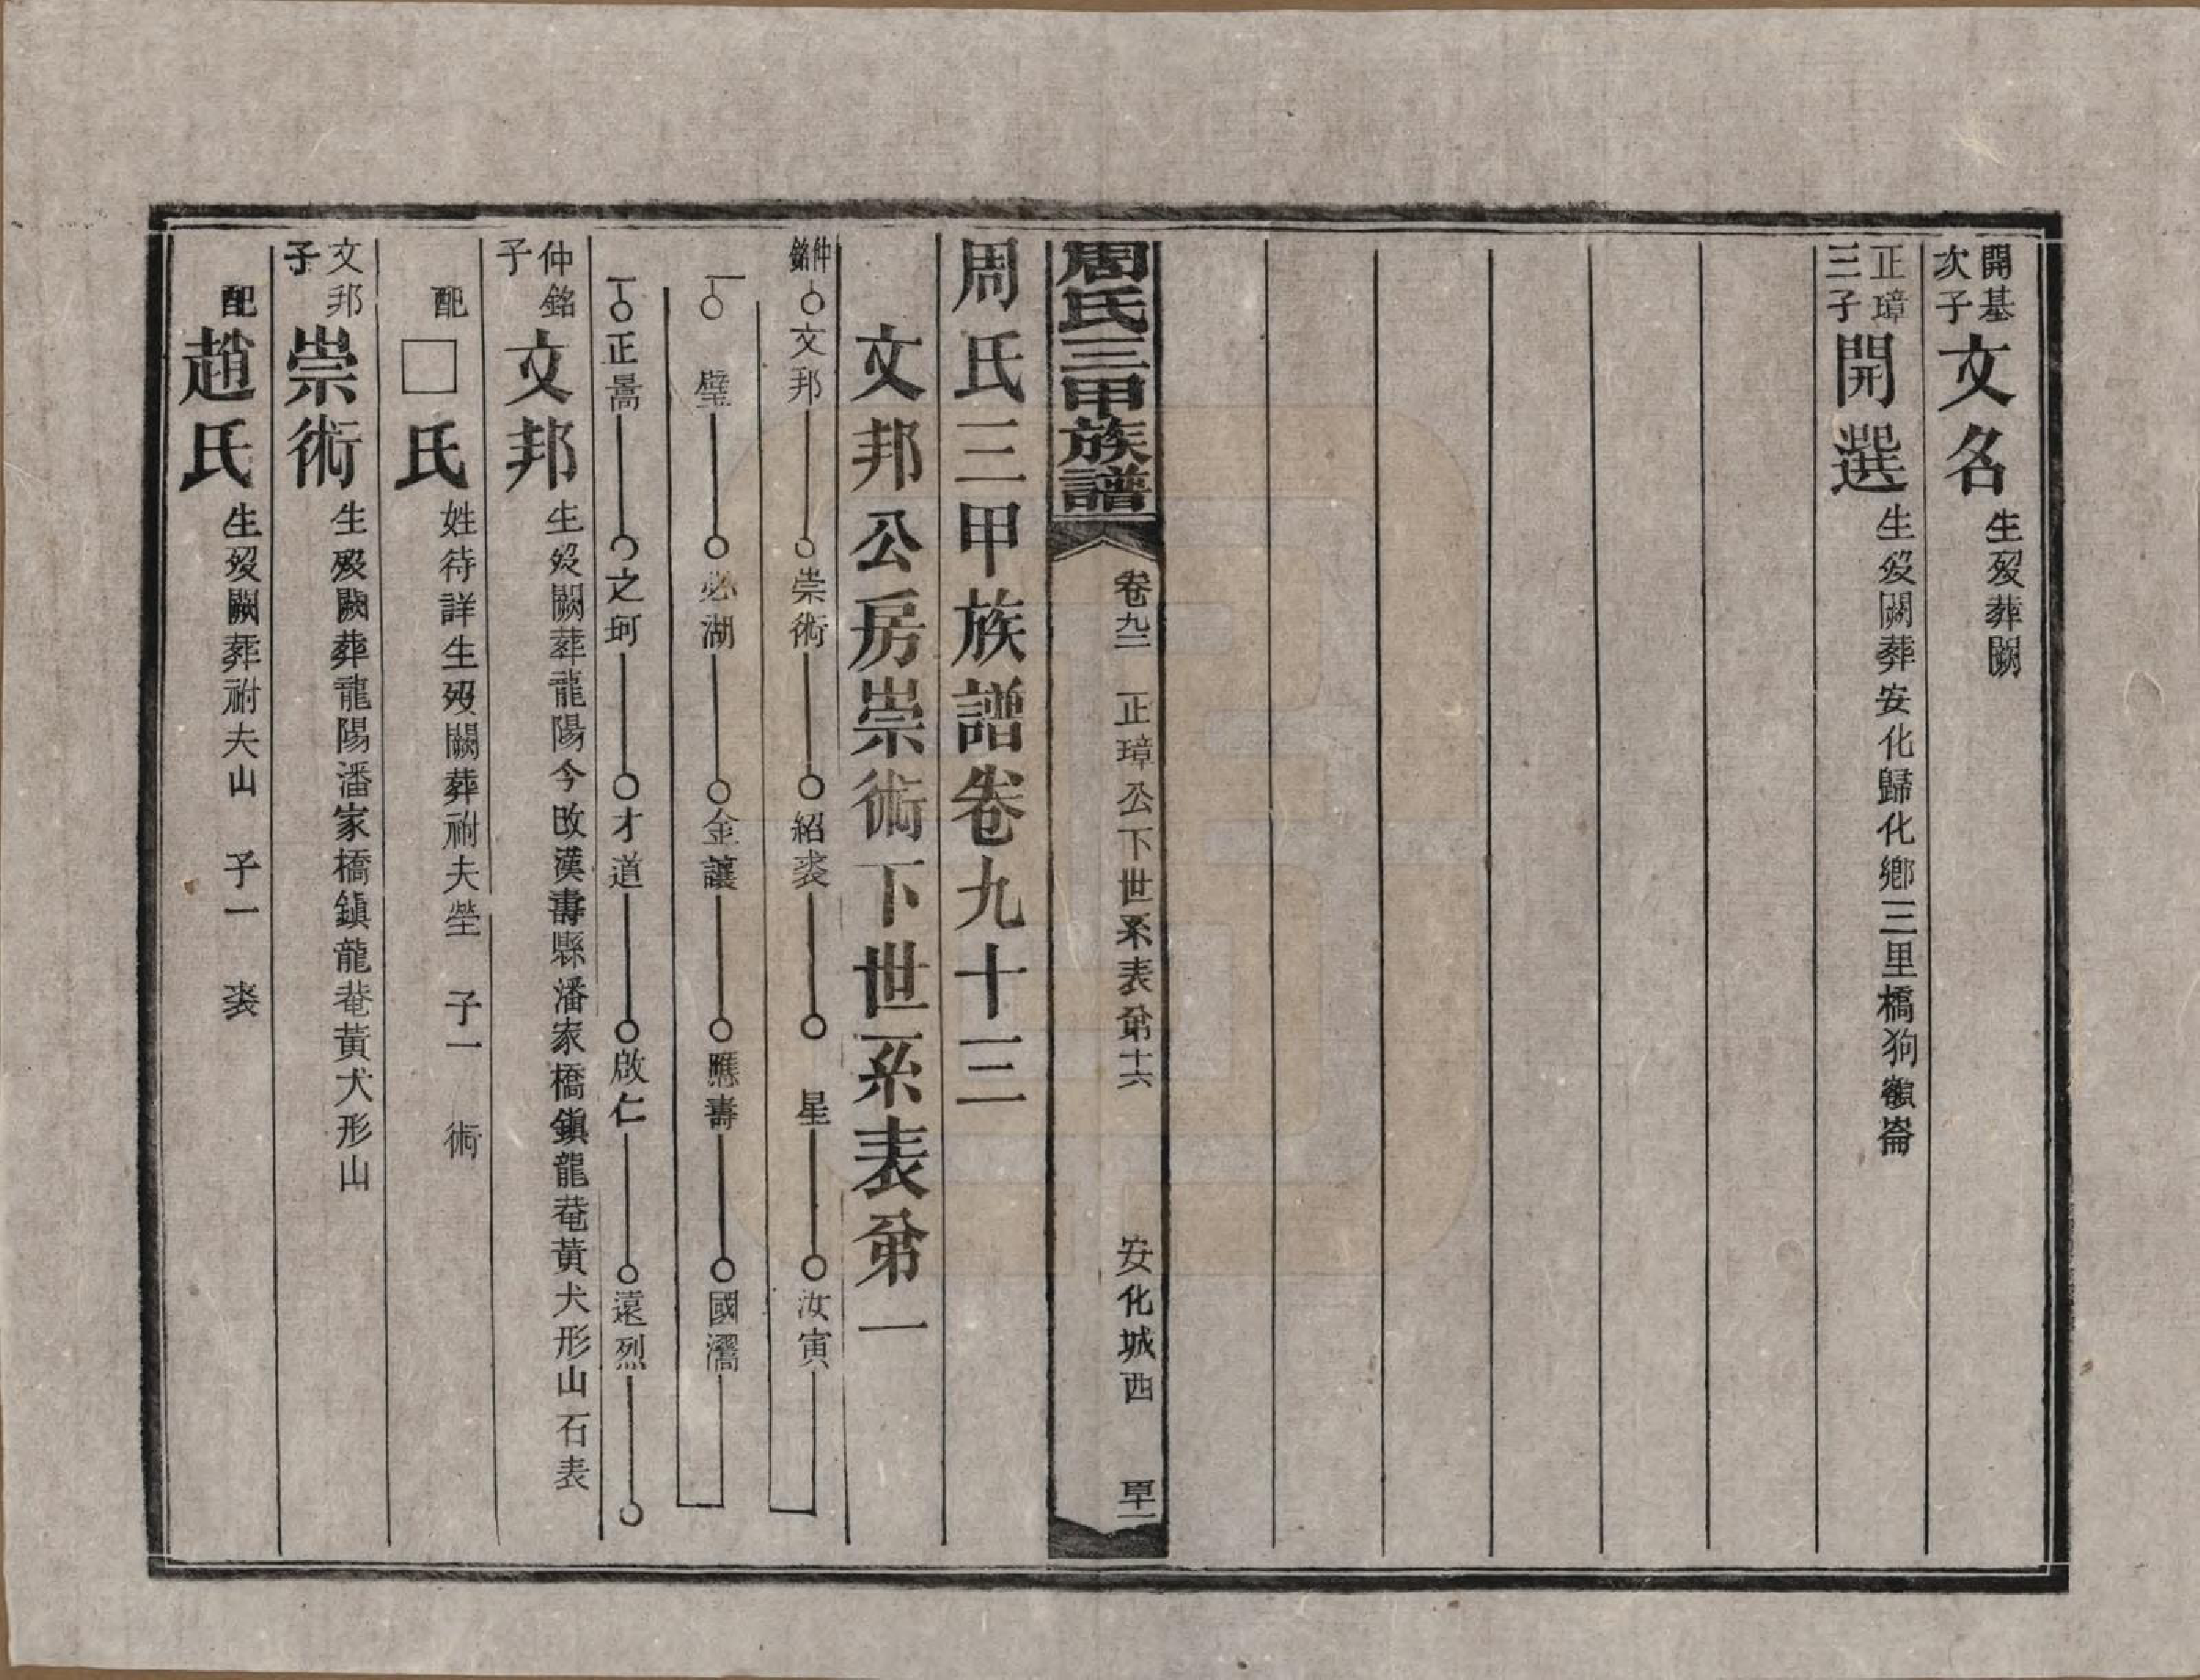 開基次子 文名 生歿葬闕
正璋三子 開選 生歿闕葬安化歸化鄉三里橋狗額崙
周氏三甲族譜 卷九二 正璋公下世系表第十六 安化城西
周氏三甲族譜卷九十三
文邦公房崇術下世系表第一
仲銘 文邦 崇術 紹裘 星 汝寅
璧 必湖 金讓 應壽 國濡
正暠 之珂 才道 啟仁 遠烈
仲銘子 文邦 生歿闕葬龍陽今改漢壽縣潘家橋鎭龍菴黃犬形山石表
配□氏 姓待詳生歿闕葬祔夫塋 子一 術
文邦子 崇術 生歿闕葬龍陽潘家橋鎭龍菴黃犬形山
配趙氏 生歿闕葬祔夫山 子一 裘